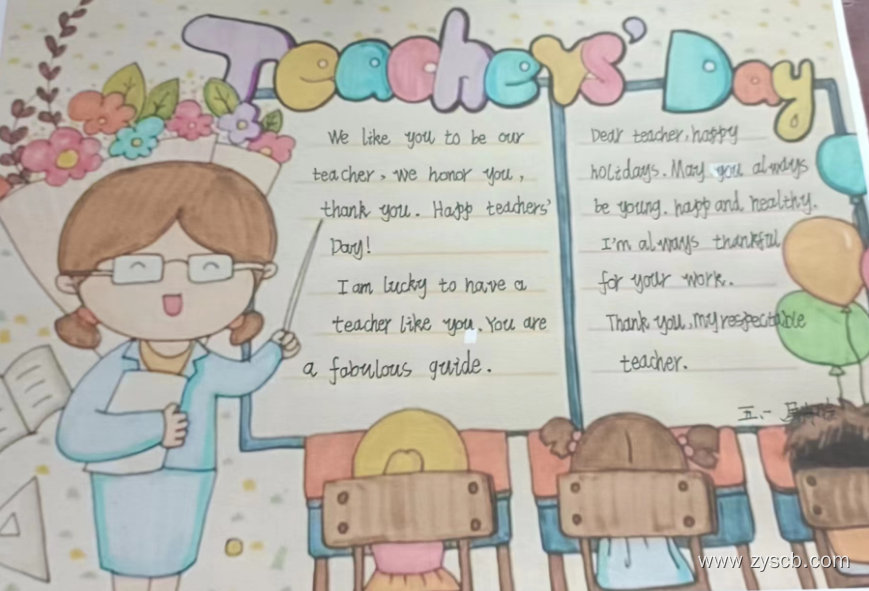 Teachers' Day
We like you to be our
teacher, we honor you,
thank you. Happ teachers'
Day!
I am lucky to have a
teacher like you. You are
a fabulous guide.
Dear teacher, happy
holidays. May you always
be young, happ and healthy.
I'm always thankful
for your work.
Thank you, my respectable
teacher.
五、一
www.zyscb.com